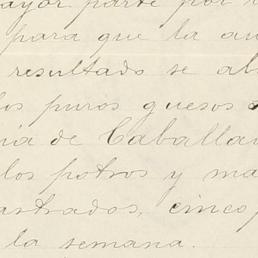 ayor parte por
para que la au
resultado se ab
los puros guesos
ia de Caballar
los potros y ma
astrados, cinco
la semana.